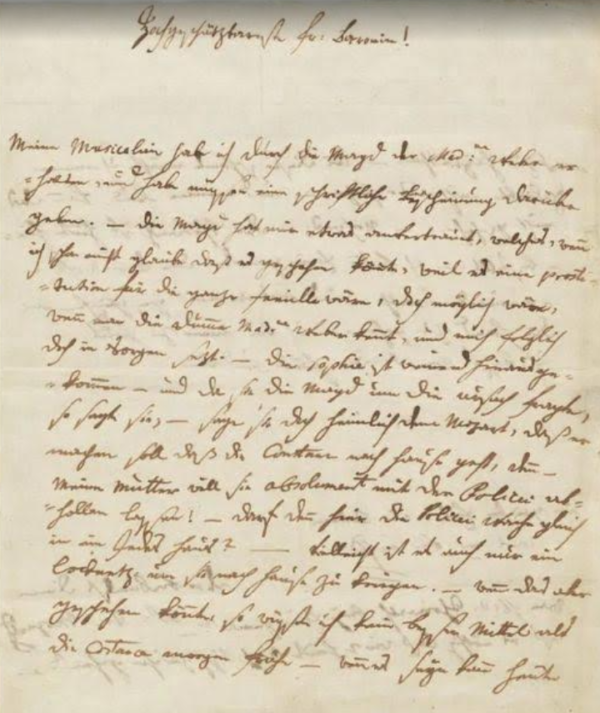 Hochgeschätzbarste fr: Baronin!
Meine Musicalien hab ich durch die Magd der Mad:me Weber er=
=halten, und habe müssen eine schriftliche bescheinung darüber
geben. — die Magd hat mir etwas anvertrauet, welches, wenn
ich schon nicht glaube daß es geschehen könte, weil es eine prosti=
=tution für die ganze famille wäre, doch möglich wäre,
wenn man die dumme Mad:me Weber kennt, und mich folglich
doch in Sorgen setzt. — die sophie ist weinend hinausge=
=kommen — und da sie die Magd um die ursach fragte,
so sagte sie, — sage sie doch heimlich dem Mozart, daß er
machen soll daß die Constanz nach hause geht, denn —
Meine Mutter will sie absolument mit der Polizei ab=
=hollen lassen! — darf denn hier die Polizei wache gleich
in ein Jedes haus? — Vielleicht ist es auch nur ein
locknetz um sie nach hause zu kriegen. — wenn das aber
geschehen könnte, so wüsste ich kein besser Mittel als
die Constanze morgen frühe — wenn es seyn kann heute